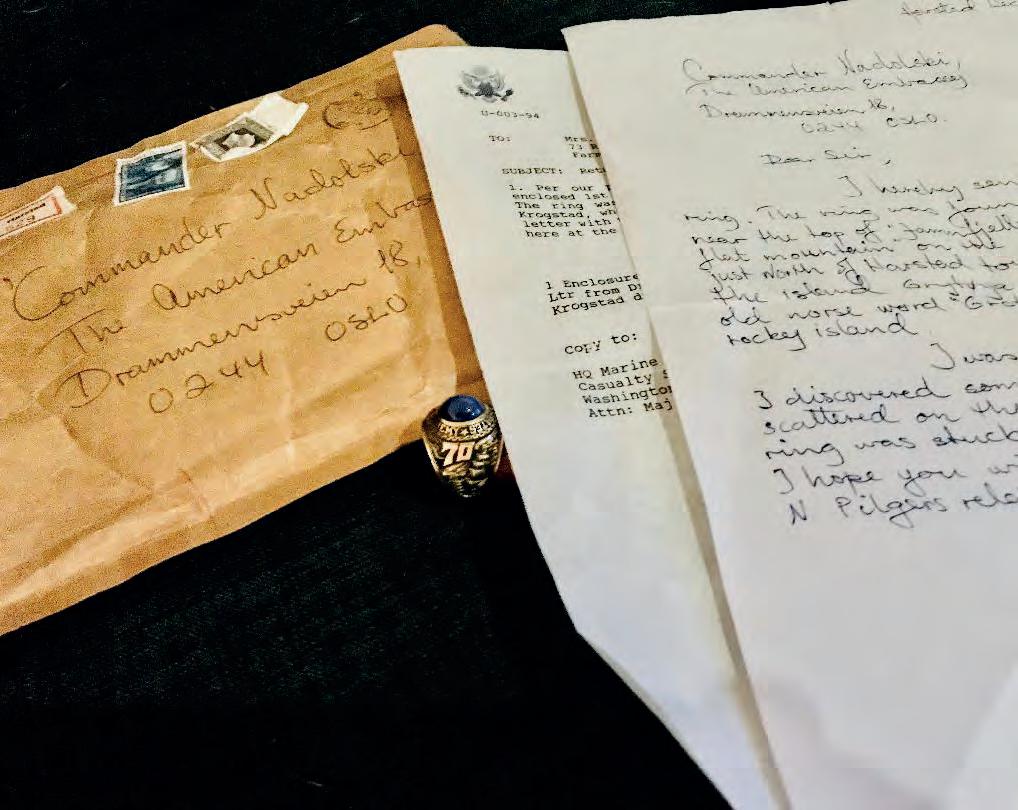 Commander Nadolski
The American Embas
Drammensveien 18,
0244 OSLO
70
U-003-94
TO: Mrs.
73 R
Farm
SUBJECT: Ret
1. Per our T
enclosed 1st
The ring was
Krogstad, wh
letter with
here at the
1 Enclosure
Ltr from
Krogstad d
copy to:
HQ Marine
Casualty
Washington
Attn: Maj
Harstad Dec
Commander Nadolski,
The American Embassy
Drammensveien 18,
0244 OSLO.
Dear Sir,
I hereby sen
ring. The ring was foun
near the top of
flat mountain" on the
just North of Harstad to
the island
old norse word
rockey island.
I was
I discovered som
scattered on the
ring was stuck
I hope you wi
N Pilgers rela